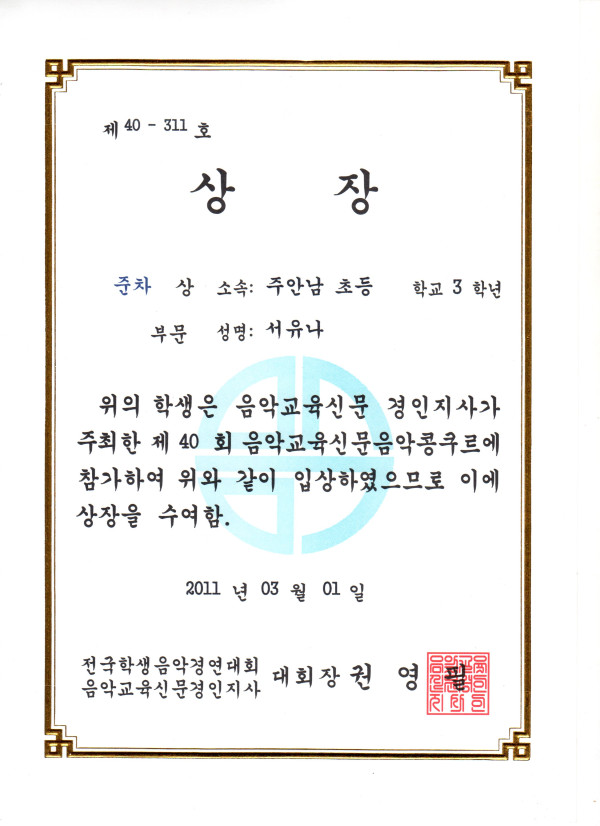 제 40 - 311 호
상 장
준차 상 소속: 주안남 초등 학교 3 학년
부문 성명: 서유나
위의 학생은 음악교육신문 경인지사가
주최한 제 40 회 음악교육신문음악콩쿠르에
참가하여 위와 같이 입상하였으므로 이에
상장을 수여함.
2011 년 03 월 01 일
전국학생음악경연대회
음악교육신문경인지사
대회장 권 영 필